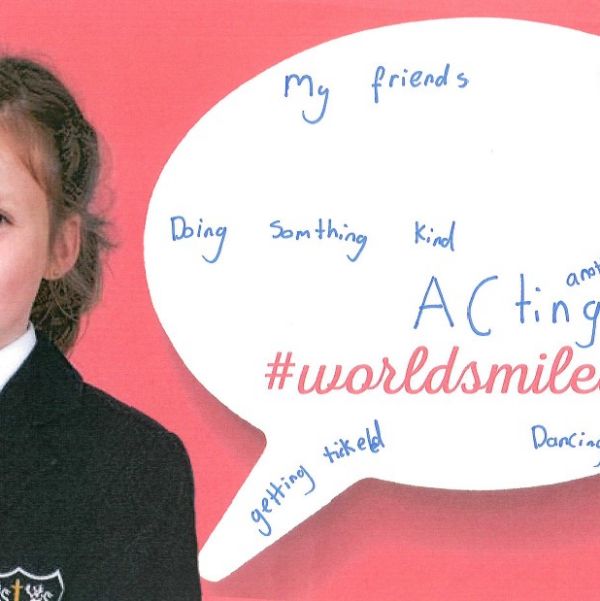 My friends
Doing Somthing Kind
ACting
#worldsmile
getting tickeld
Dancing